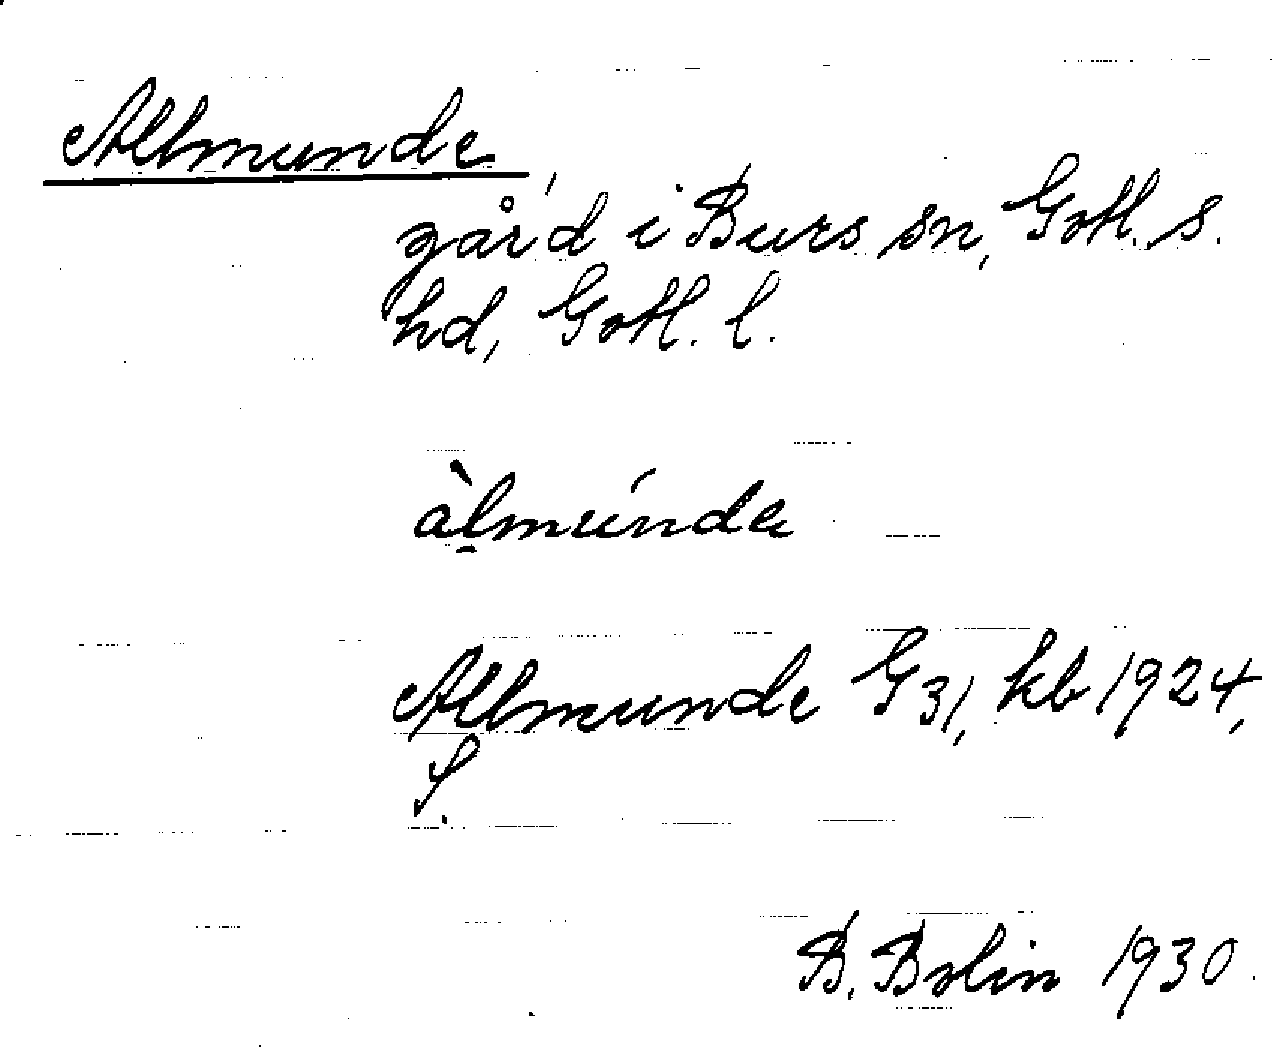 Allmunde
gård i Burs sn, Gotl. s.
hd, Gotl. l.
àlmúnde
Allmunde G 31, kb 1924,
J.
B. Bolin 1930.